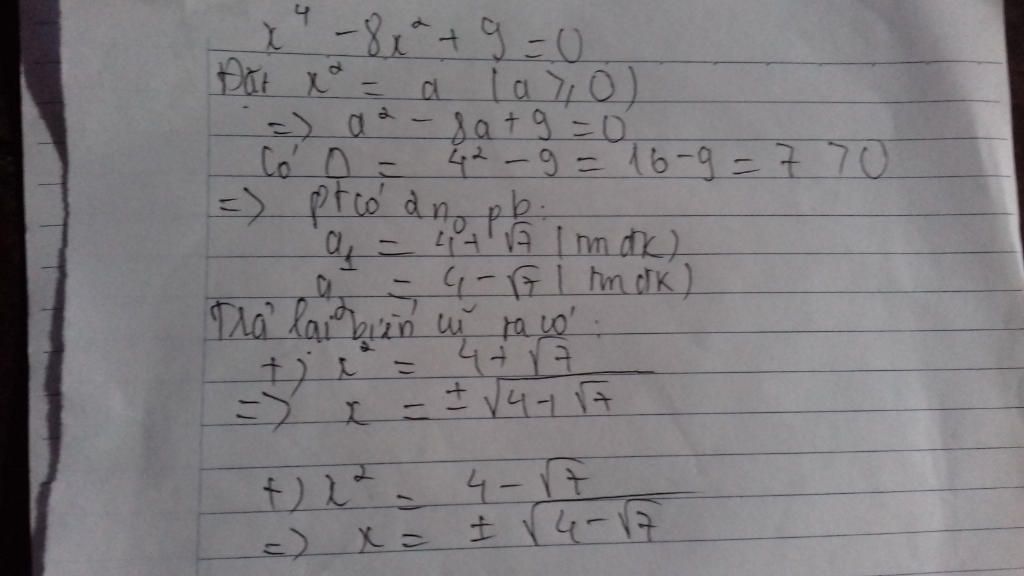 x⁴ - 8x² + 9 = 0
Đặt x² = a (a ≥ 0)
=> a² - 8a + 9 = 0
Có Δ = 4² - 9 = 16 - 9 = 7 > 0
=> pt có 2 n₀ pb:
a₁ = 4 + √7 (tmđk)
a₂ = 4 - √7 (tmđk)
Trả lại biến cũ ta có:
+) x² = 4 + √7
=> x = ± √(4 + √7)
+) x² = 4 - √7
=> x = ± √(4 - √7)